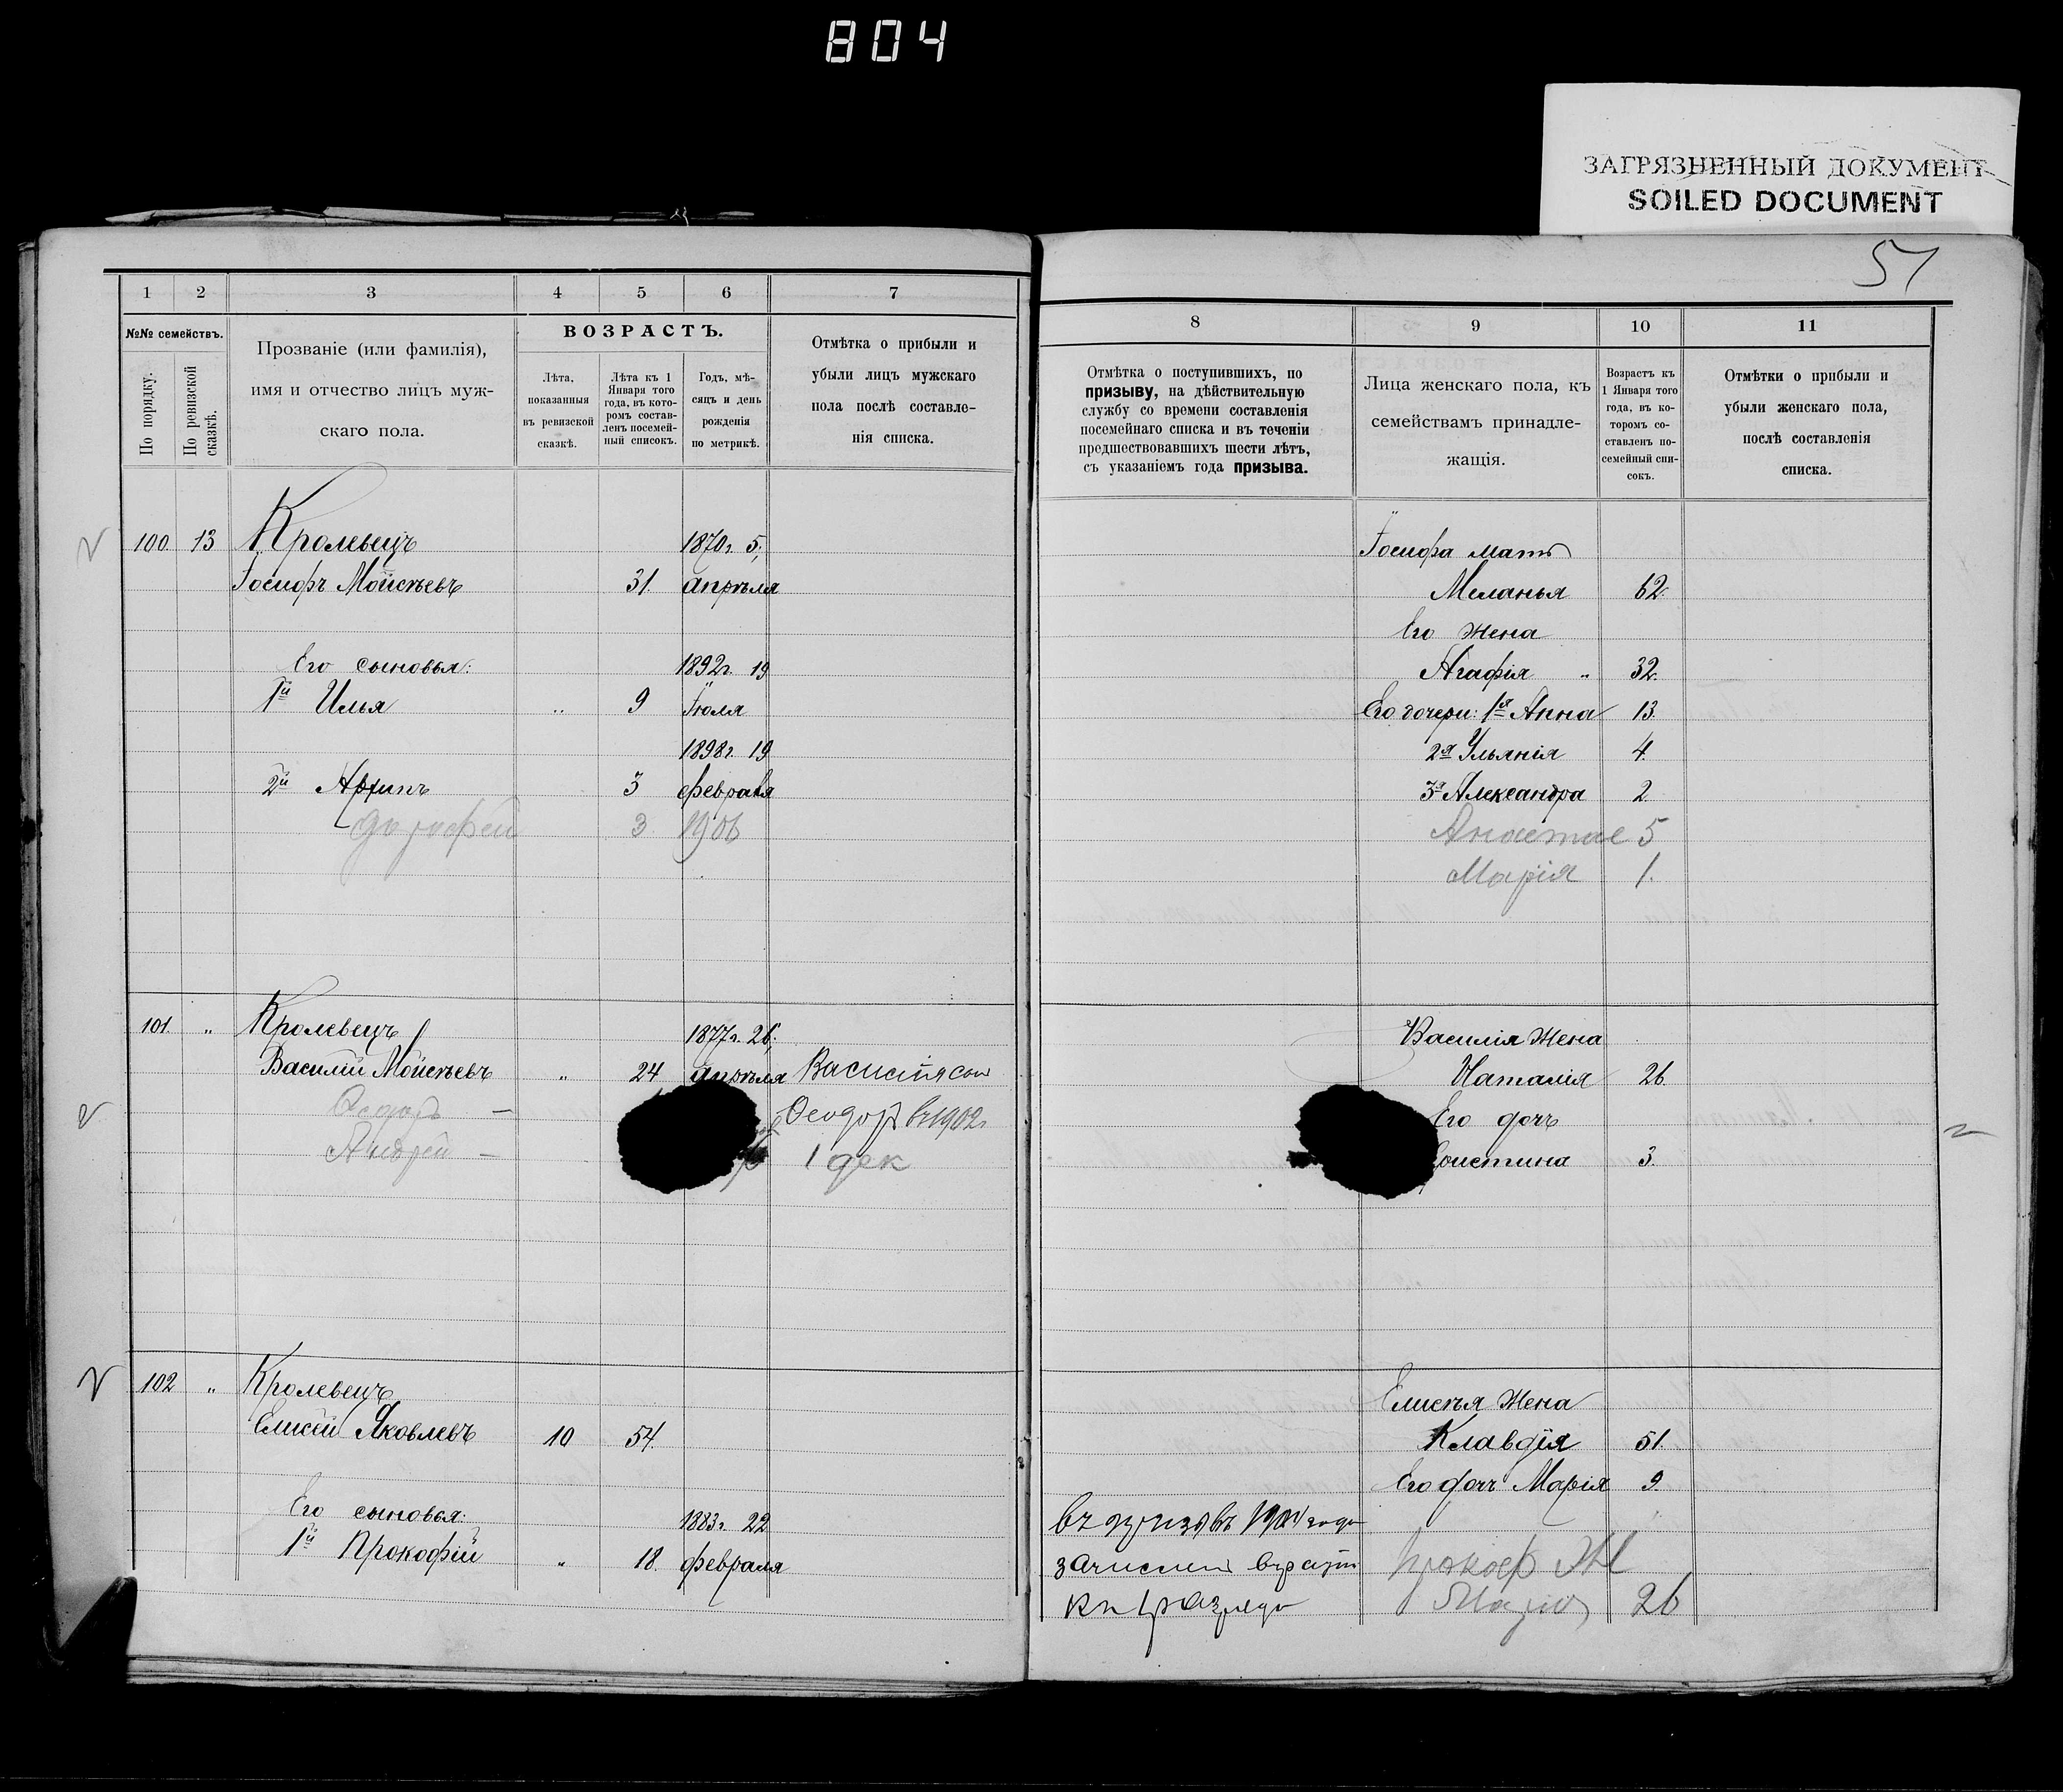 804
ЗАГРЯЗНЕННЫЙ ДОКУМЕНТ
SOILED DOCUMENT
51
1 2 3 4 5 6 7
№№ семействъ.
По порядку.
По ревизской сказкѣ.
Прозваніе (или фамилія),
имя и отчество лицъ муж-
скаго пола.
ВОЗРАСТЪ.
Лѣта,
показанныя
въ ревизской
сказкѣ.
Лѣта къ 1
Января того
года, въ кото-
ромъ состав-
ленъ посемей-
ный списокъ.
Годъ, мѣ-
сяцъ и день
рожденія
по метрикѣ.
Отмѣтка о прибыли и
убыли лицъ мужскаго
пола послѣ составле-
нія списка.
100. 13 Кролевецъ 1870г. 5,
Іосифъ Моисѣевъ 31. апрѣля
Его сыновья: 1892г. 19
1й Илья " 9 Іюля
1898г. 19
2й Архипъ 3 февраля
Дорофей 3 1906
101. " Кролевецъ 1877г. 26,
Василій Моисѣевъ " 24 апрѣля Василія сын
Федоръ — Феодор в 1902г
Андрей — 1 дек
102 " Кролевецъ
Елисей Яковлевъ 10 54.
Его сыновья: 1883г. 22
1й Прокофій " 18. февраля
8 9 10 11
Отмѣтка о поступившихъ, по
призыву, на дѣйствительную
службу со времени составленія
посемейнаго списка и въ теченіи
предшествовавшихъ шести лѣтъ,
съ указаніемъ года призыва.
Лица женскаго пола, къ
семействамъ принадле-
жащія.
Возрастъ къ
1 Января того
года, въ ко-
торомъ со-
ставленъ по-
семейный спи-
сокъ.
Отмѣтки о прибыли и
убыли женскаго пола,
послѣ составленія
списка.
Іосифа мать
Меланья 62.
Его жена
Агафія " 32.
Его дочери: 1я Анна 13.
2я Ульянія 4.
3я Александра 2.
Анастас 5
Марія 1.
Василія жена
Наталія 26.
Его дочь
ристина 3.
Елисѣя жена
Клавдія 51.
Его дочь Марія 9.
въ призывъ 1904 года
зачислен въ рат
Прокоф Ж
Марія 26